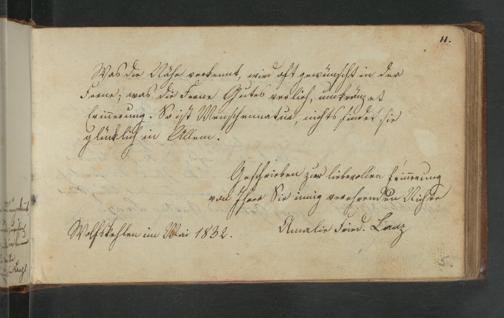 11.
Was die Nähe verkennt, wird oft gewünscht in der
Ferne; was die Ferne Gutes verlieh, umkränzet
Erinnerung. So ist Menschennatur, nichts findet sie
glücklich in Allem.
Geschrieben zur liebevollen Erinnerung
von Ihrer Sie innig verehrenden Nichte
Wolfskehlen im Mai 1832. Amalie Fried. Lanz